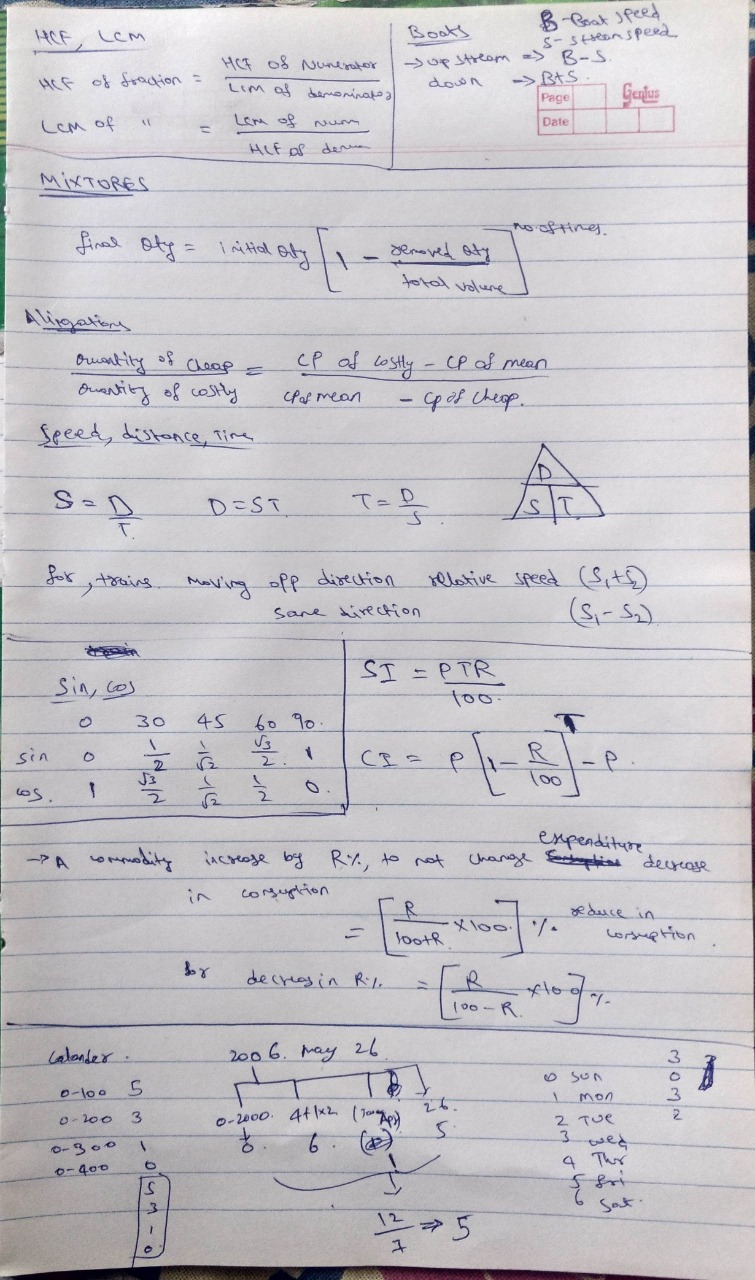 HCF, LCM
HCF of fraction = HCF of Numerator / LCM of denominator
LCM of " = LCM of num / HCF of denm
Boats
B - Boat speed
S - Stream speed
→ up stream => B-S.
down => B+S.
Page
Date
Genius
MIXTORES
final Qty = initial Qty [1 - removed Qty / total volume] no. of times.
Alligations
Quantity of Cheap / Quantity of costly = CP of costly - CP of mean / CP of mean - CP of cheap.
Speed, distance, Time
S = D/T. D = ST. T = D/S.
D
S T
for, trains moving opp direction relative speed (S₁+S₂)
same direction (S₁-S₂)
Sin, cos
0 30 45 60 90.
sin 0 1/2 1/√2 √3/2. 1
cos. 1 √3/2 1/√2 1/2 0.
SI = PTR/100.
CI = P[1 - R/100]^T - P.
→ A commodity increase by R%, to not change expenditure decrease
in consuption
= [R/100+R × 100.] % reduce in consuption.
for decreas in R%. = [R/100-R. × 100] %
Calander.
0-100 5
0-200 3
0-300 1
0-400 0
5
3
1
0
2006. May 26
0-2000. 4+1x2 26.
0. 6. 5.
12/7 => 5
0 SUN
1 mon
2 TUE
3 wed
4 Thr
5 fri
6 Sat.
3
0
3
2